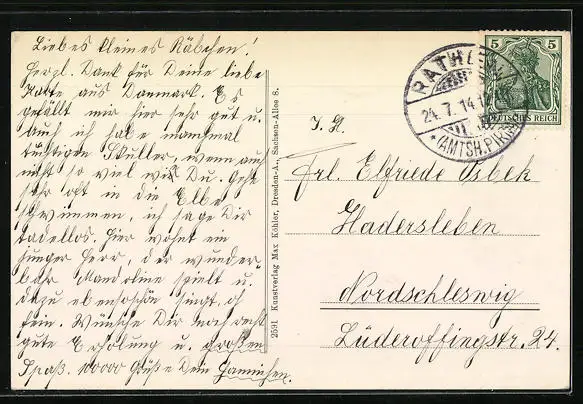 Liebes kleines Räbchen!
Herzl. Dank für Deine liebe
Karte aus Danmark. Es
gefällt mir hier sehr gut u.
Auch ich habe manchmal
tüchtigen Skuller, wenn auch
nicht so viel wie Du. Gehe
sehr oft in die Elbe
schwimmen, ich sage Dir
tadellos. Hier wohnt ein
junger Herr, der wunder-
bar Mandoline spielt u.
dazu ebensoschön singt, oh
fein. Wünsche Dir noch recht
gute Erholung u. großen
Spaß. 10000 Grüße Dein Hannichen.
2591 Kunstverlag Max Köhler, Dresden-A., Sachsen-Allee 8.
5 5
DEUTSCHES REICH
RATHEN
24.7.14.
*(AMTSH. PIRNA)
Frl. Elfriede Osbek
Hadersleben
Nordschleswig
Lüderoffingstr. 24.